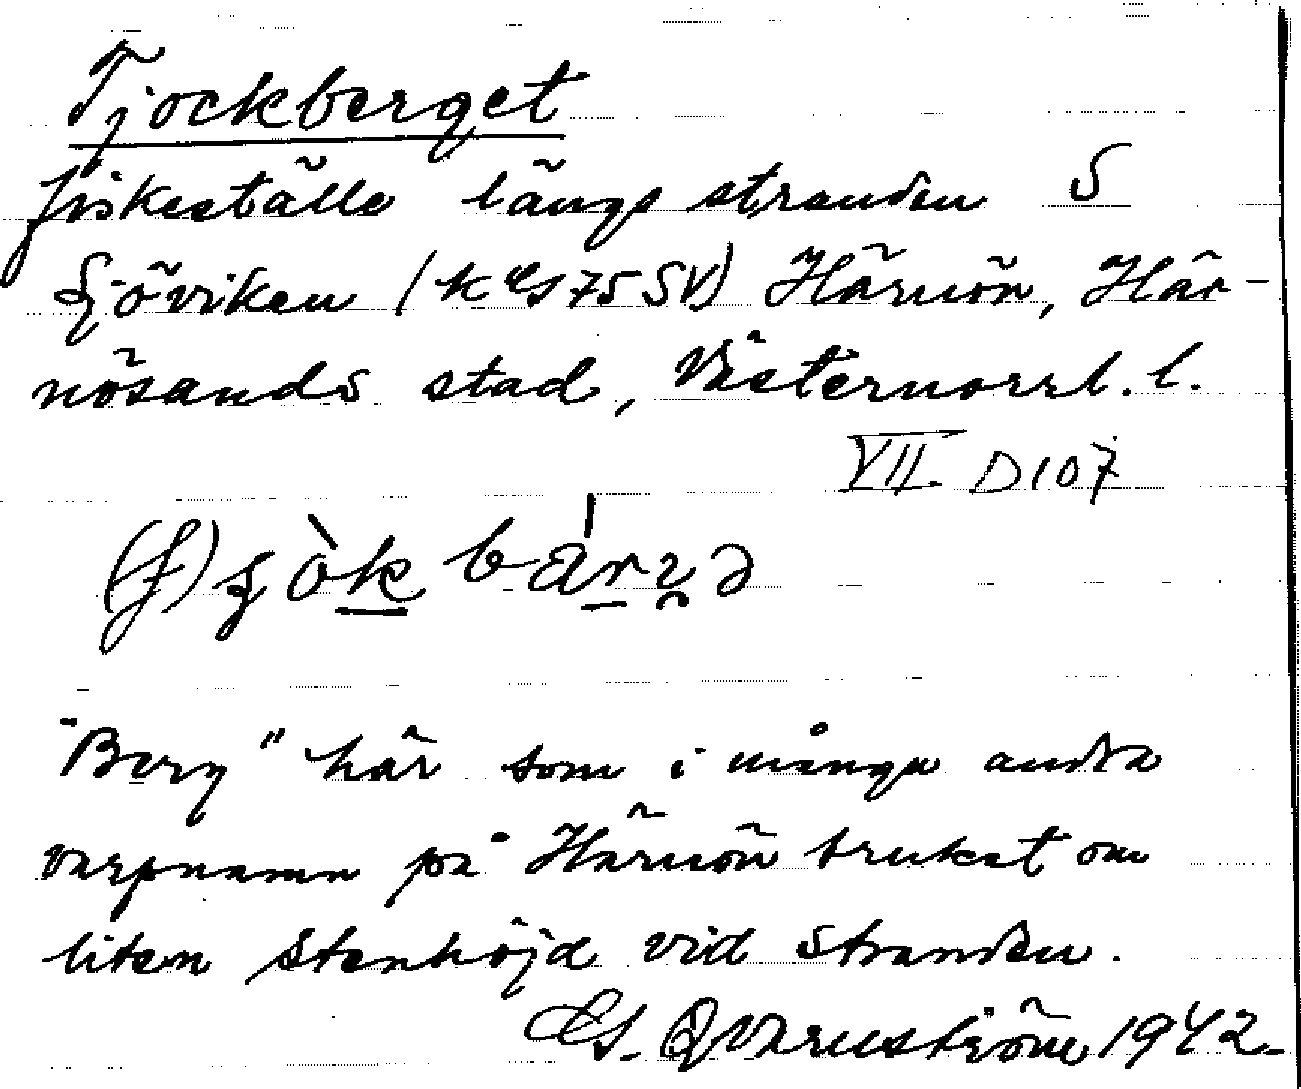 Tjockberget
fiskeställe längs stranden S
Sjöviken (k 75 SV) Härnön, Här-
nösands stad, Västernorrl. l.
VII D107
"Berg" här som i många andra
varpnamn på Härnön brukat om
liten stenhöjd vid stranden.
Qvarnström 1942